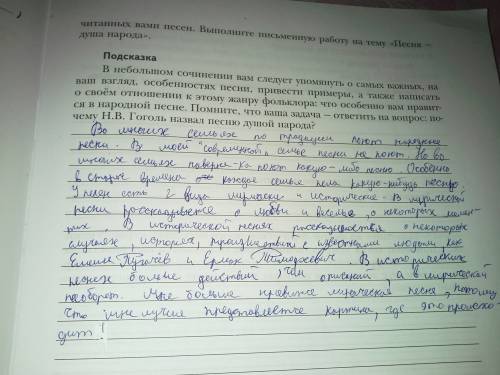 читанных вами песен. Выполните письменную работу на тему «Песня –
душа народа».
Подсказка
В небольшом сочинении вам следует упомянуть о самых важных, на
ваш взгляд, особенностях песни, привести примеры, а также написать
о своём отношении к этому жанру фольклора: что особенно вам нравит-
ся в народной песне. Помните, что ваша задача – ответить на вопрос: по-
чему Н.В. Гоголь назвал песню душой народа?
Во многих семьях по традиции поют народные
песни. В моей "современной" семье песни не поют. Но во
многих семьях поют какую-либо песню. Особенно
в старые времена каждая семья пела какую-нибудь песню.
У песен есть 2 вида лирические и исторические. В лирической
песни рассказывается о любви и веселье, о некоторых момен-
тах. В исторической песнях рассказывается о некоторых
случаях, историях, происшествиях с известными людьми, как
Емельян Пугачёв и Ермак Тимофеевич. В исторических
песнях больше действий, чем описаний, а в лирической
наоборот. Мне больше нравится лирическая песня, потому
что мне лучше представляется картина, где это происхо-
дит!